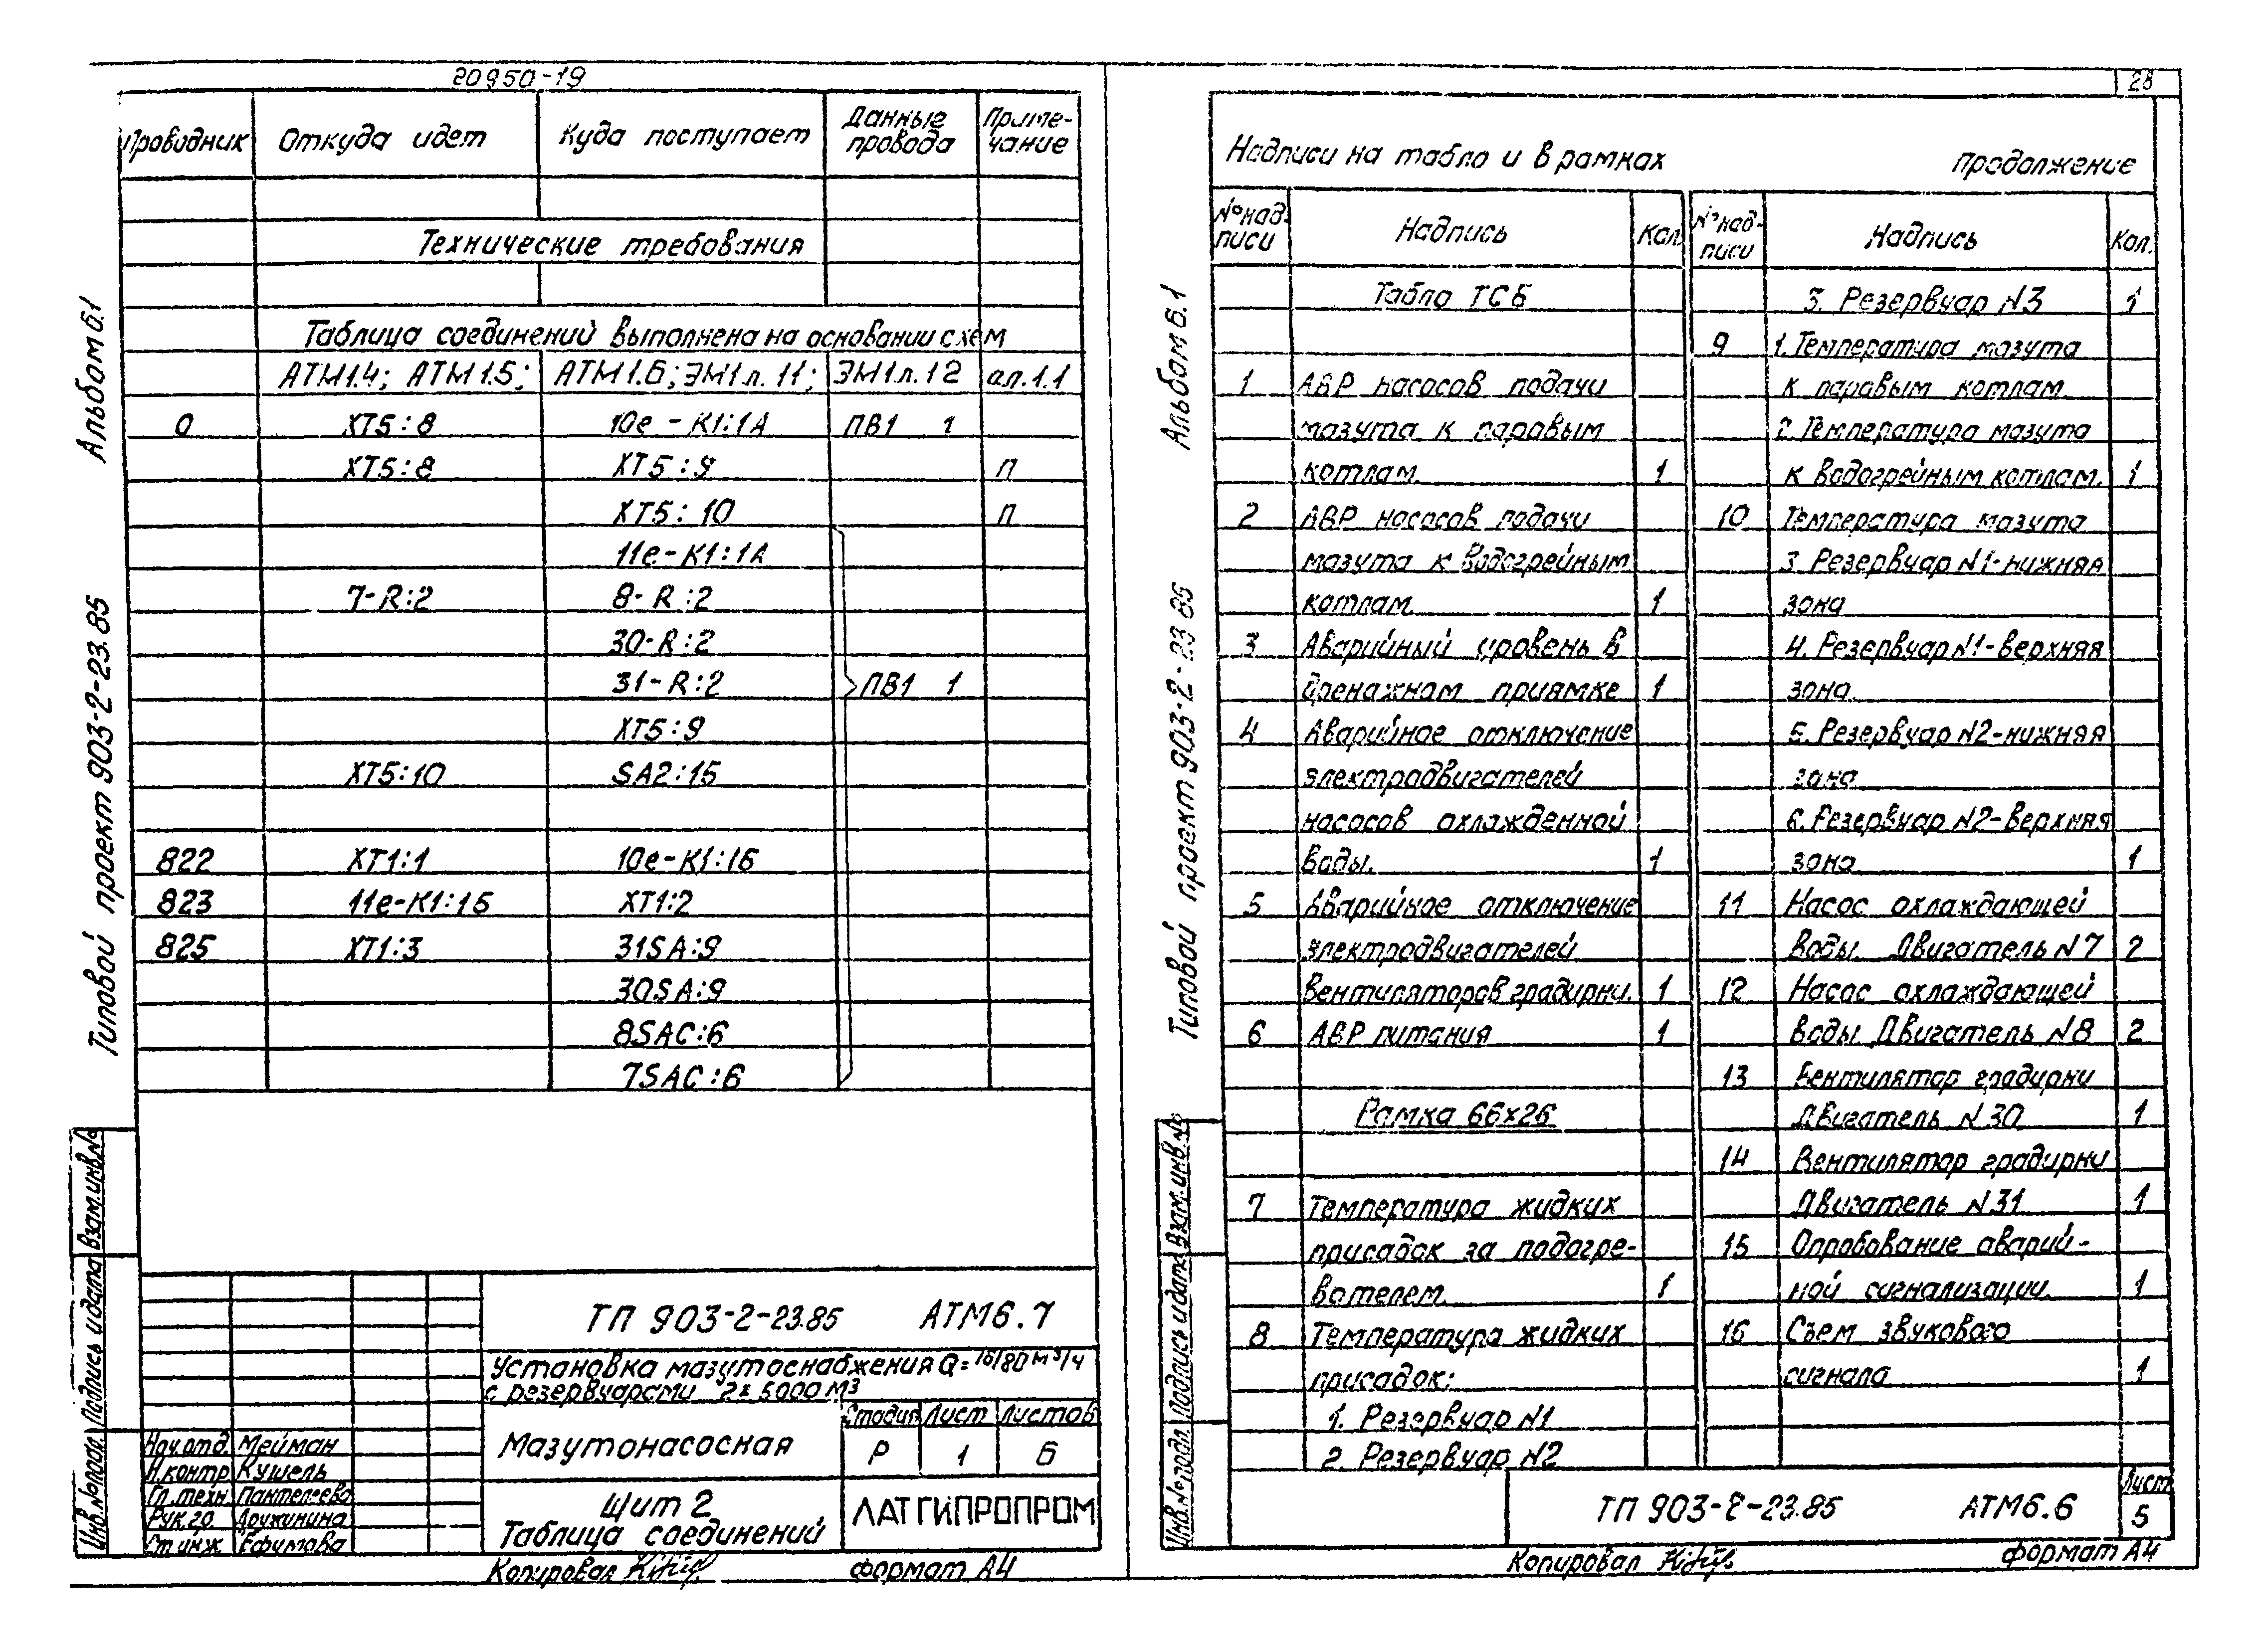 20950-19
28
Проводник Откуда идет Куда поступает Данные провода Приме-чание
Технические требования
Таблица соединений выполнена на основании схем
АТМ1.4; АТМ1.5; АТМ1.6; ЭМ1л.11; ЭМ1л.12 ал.1.1
0 ХТ5:8 10е-К1:1А ПВ1 1
ХТ5:8 ХТ5:9 П
ХТ5:10 П
11е-К1:1А
7-R:2 8-R:2
30-R:2
31-R:2 ПВ1 1
ХТ5:9
ХТ5:10 SA2:15
822 ХТ1:1 10е-К1:1Б
823 11е-К1:1Б ХТ1:2
825 ХТ1:3 31SA:9
30SA:9
8SAC:6
7SAC:6
Альбом 6.1
Типовой проект 903-2-23.85
Взам.инв.№
Подпись и дата
Инв.№подл.
ТП 903-2-23.85 АТМ6.7
Установка мазутоснабжения Q=16/80 м³/ч
с резервуарами 2х5000 м³
Мазутонасосная
Стадия Лист Листов
Р 1 6
Щит 2
Таблица соединений
ЛАТГИПРОПРОМ
Нач.отд. Мейман
Н.контр Кушель
Гл.техн Пантелеева
Рук.гр. Дружинина
Ст.инж Ефимова
Копировал
формат А4
Надписи на табло и в рамках продолжение
№ над-писи Надпись Кол. № над-писи Надпись Кол.
Табло ТСБ
1 АВР насосов подачи
мазута к паровым
котлам. 1
2 АВР насосов подачи
мазута к водогрейным
котлам 1
3 Аварийный уровень в
дренажном приямке 1
4 Аварийное отключение
электродвигателей
насосов охлажденной
воды. 1
5 Аварийное отключение
электродвигателей
вентиляторов градирни. 1
6 АВР питания 1
Рамка 66х26
7 Температура жидких
присадок за подогре-
вателем. 1
8 Температура жидких
присадок:
1. Резервуар N1
2. Резервуар N2
3. Резервуар N3 1
9 1. Температура мазута
к паровым котлам.
2. Температура мазута
к водогрейным котлам. 1
10 Температура мазута
3. Резервуар N1-нижняя
зона
4. Резервуар N1-верхняя
зона.
5. Резервуар N2-нижняя
зона
6. Резервуар N2-верхняя
зона 1
11 Насос охлаждающей
воды. Двигатель N7 2
12 Насос охлаждающей
воды Двигатель N8 2
13 Вентилятор градирни
Двигатель N30 1
14 Вентилятор градирни
Двигатель N31 1
15 Опробование аварий-
ной сигнализации. 1
16 Съем звукового
сигнала 1
Альбом 6.1
Типовой проект 903-2-23 85
Взам.инв.№
Подпись и дата
Инв.№подл.
ТП 903-2-23.85 АТМ6.6
Лист
5
Копировал
формат А4